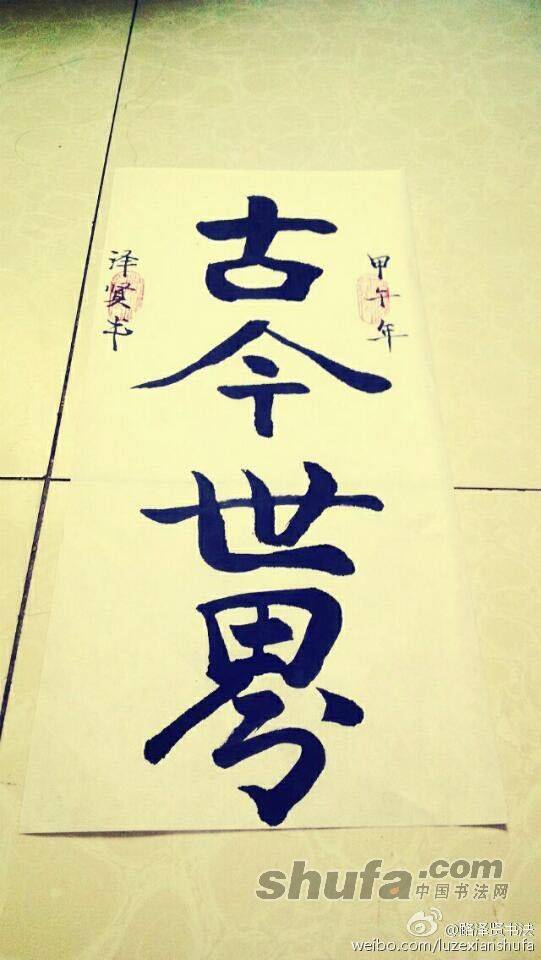 古今世界
甲午年
泽贤书
shufa.com
中国书法网
@路泽贤书法
weibo.com/luzexianshufa